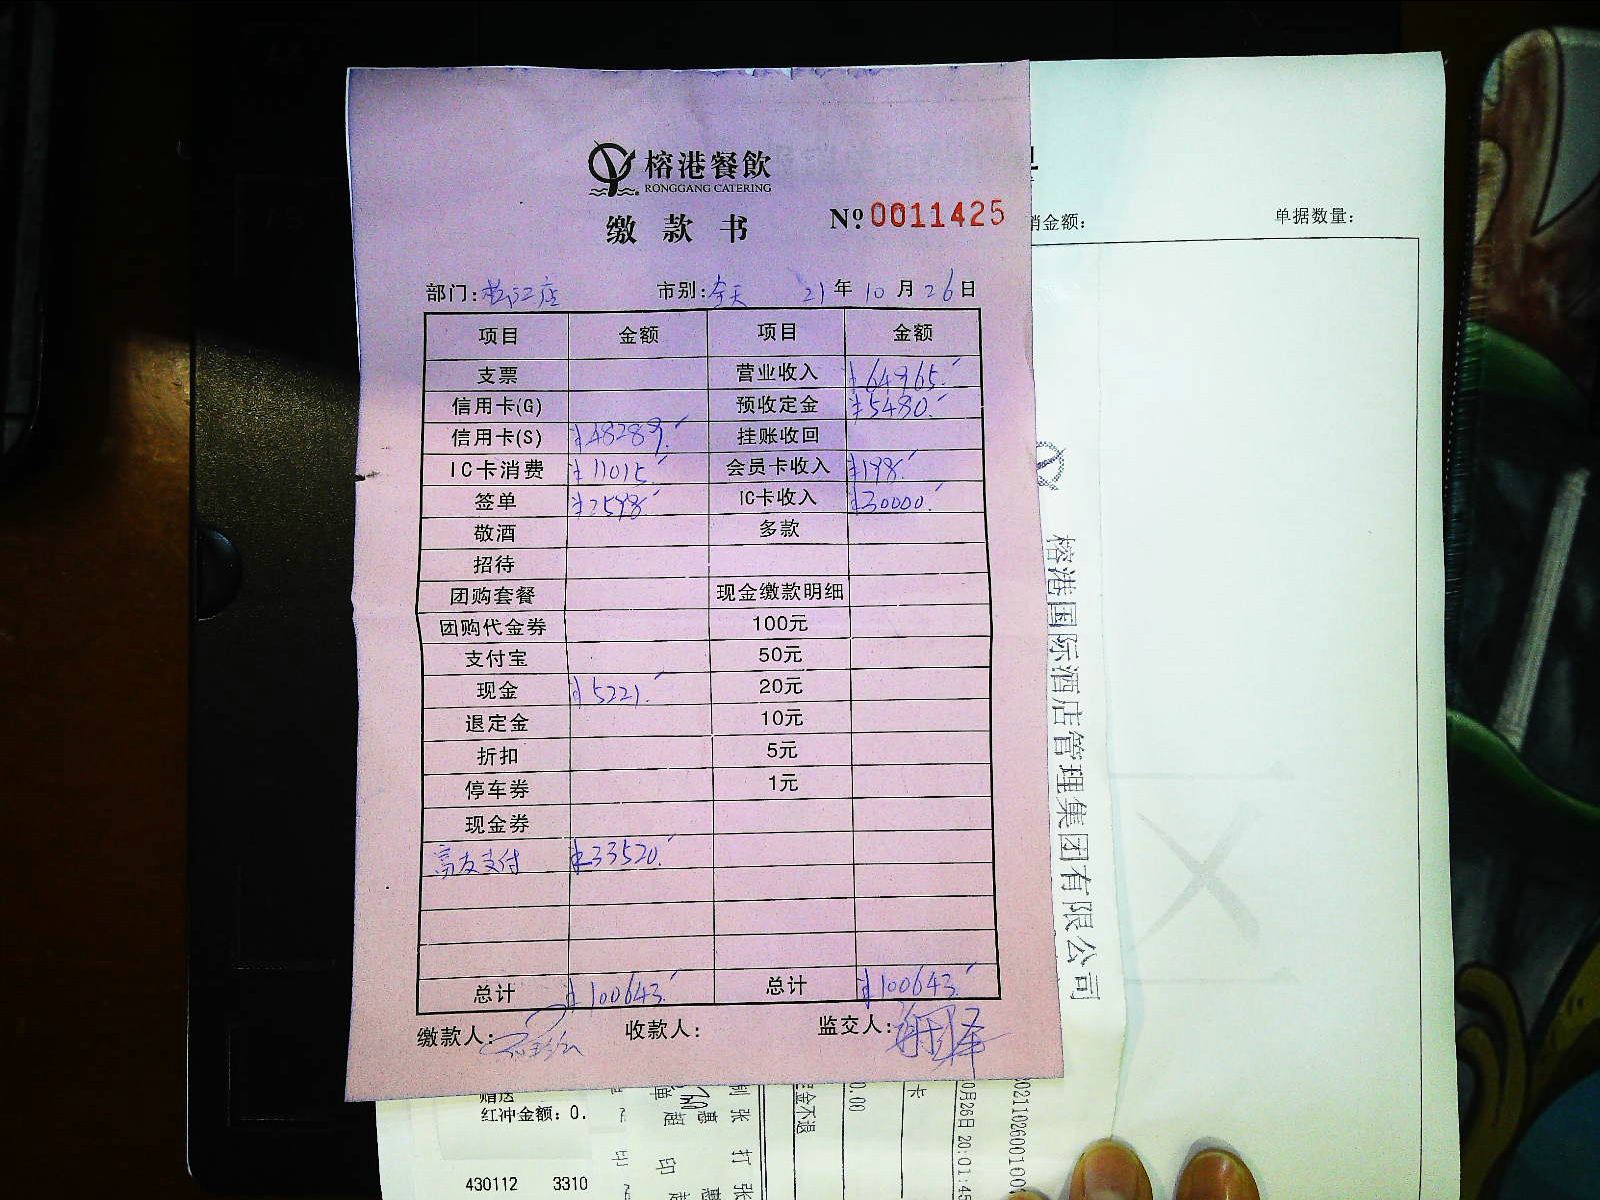 榕港餐飲
RONGGANG CATERING
缴款书
Nº 0011425
部门:松江店 市别:全天 21年10月26日
项目 金额 项目 金额
支票 营业收入 ¥64965.
信用卡(G) 预收定金 ¥5480.
信用卡(S) ¥48289. 挂账收回
IC卡消费 ¥11015 会员卡收入 ¥198.
签单 ¥2598. IC卡收入 ¥30000.
敬酒 多款
招待
团购套餐 现金缴款明细
团购代金券 100元
支付宝 50元
现金 ¥5221. 20元
退定金 10元
折扣 5元
停车券 1元
现金券
富友支付 ¥33520.
总计 ¥100643. 总计 ¥100643.
缴款人: 收款人: 监交人:
销金额: 单据数量:
榕港国际酒店管理集团有限公司
赠送
红冲金额:0.
430112 3310
定金不退
0.00
卡
0月26日 20:01:45